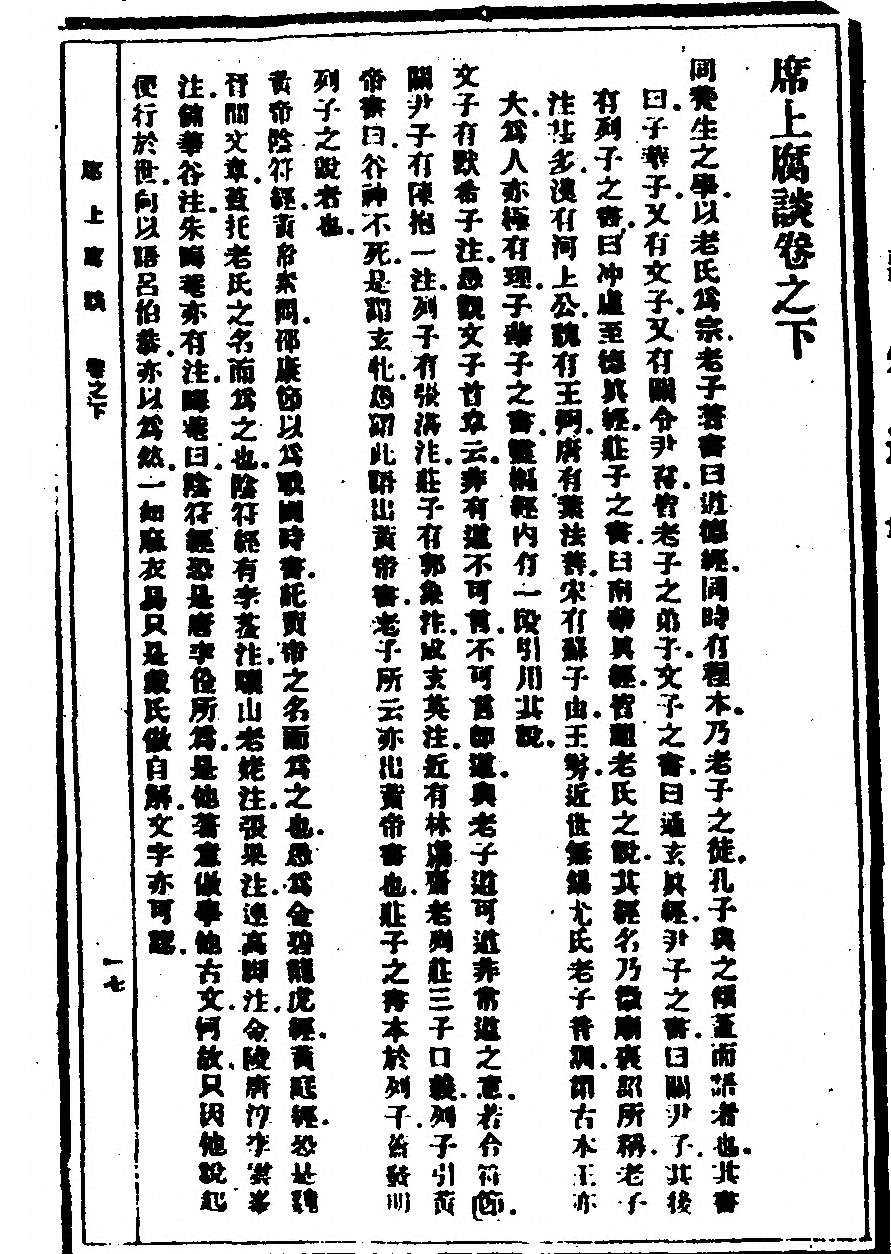 席上腐談卷之下
同養生之學。以老氏爲宗。老子著書曰道德經。同時有程本。乃老子之徒。孔子與之傾蓋而語者也。其書
曰子華子。又有文子。又有關令尹喜。皆老子之弟子。文子之書。曰通玄眞經。尹子之書。曰關尹子。其後
有列子之書。曰冲虛至德眞經。莊子之書。曰南華眞經。皆祖老氏之說。其經名乃徽廟褒詔所稱。老子
注甚多。漢有河上公。魏有王弼。唐有葉法善。宋有蘇子由。王雱。近世無錫尤氏老子音訓。謂古本王
大爲人亦極有理。子華子之書。經內有一段引用其說。
文子有默希子注。愚觀文子首章云。非有道不可言。不可言卽道。與老子道可道非常道之意。若合符節。
關尹子有陳抱一注。列子有張湛注。莊子有郭象注。成玄英注。近有林鬳齋老列莊三子口義。列子引黃
帝書曰。谷神不死。是謂玄牝。愚謂此語出黃帝書。老子所云。亦出黃帝書也。莊子之書本於列子。蓋發明
列子之說者也。
黃帝陰符經。黃帝素問。邵康節以爲戰國時書。託黃帝之名而爲之也。愚爲金碧龍虎經。黃庭經。恐是魏
晉間文章。蓋托老氏之名而爲之也。陰符經有李筌注。驪山老姥注。張果注。達高脚注。金陵唐淳李雲峯
注。儲華谷注。朱晦菴亦有注。晦菴曰。陰符經恐是唐李筌所爲。是他著意做學他古文。何故只因他說起
便行於世。向以語呂伯恭。亦以爲然。一如麻衣易。只是戴氏做自解。文字亦可認。
席上腐談 卷之下
一七